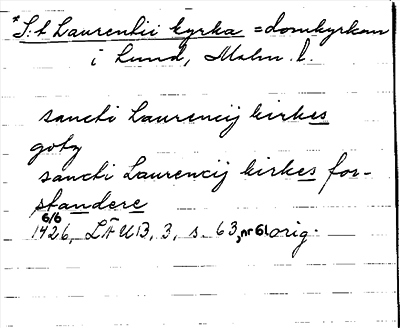 *S:t Laurentii kyrka = domkyrkan
i Lund, Malm. l.
sancti Laurencij kirkes
gotz
sancti Laurencij kirkes for-
standere
6/6
1426, LÄUB, 3, s. 63, nr 61 orig.